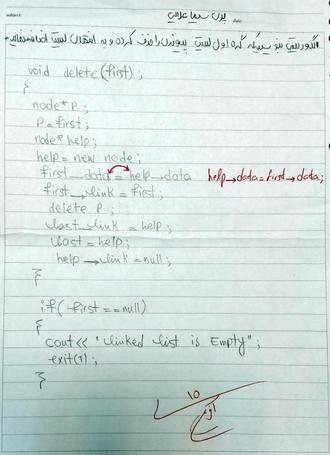 subject:
date:
الگوریتمی بنویسید که گره اول لیست پیوندی را حذف کرده و به انتهای لیست اضافه نماید.
void delete(first);
{
node* p;
p = first;
node* help;
help = new node;
first→data = help→data help→data = first→data;
first→link = first;
delete p;
last→link = help;
last = help;
help→link = null;
}
if(first == null)
{
cout<< "linked list is Empty";
exit(1);
}
10